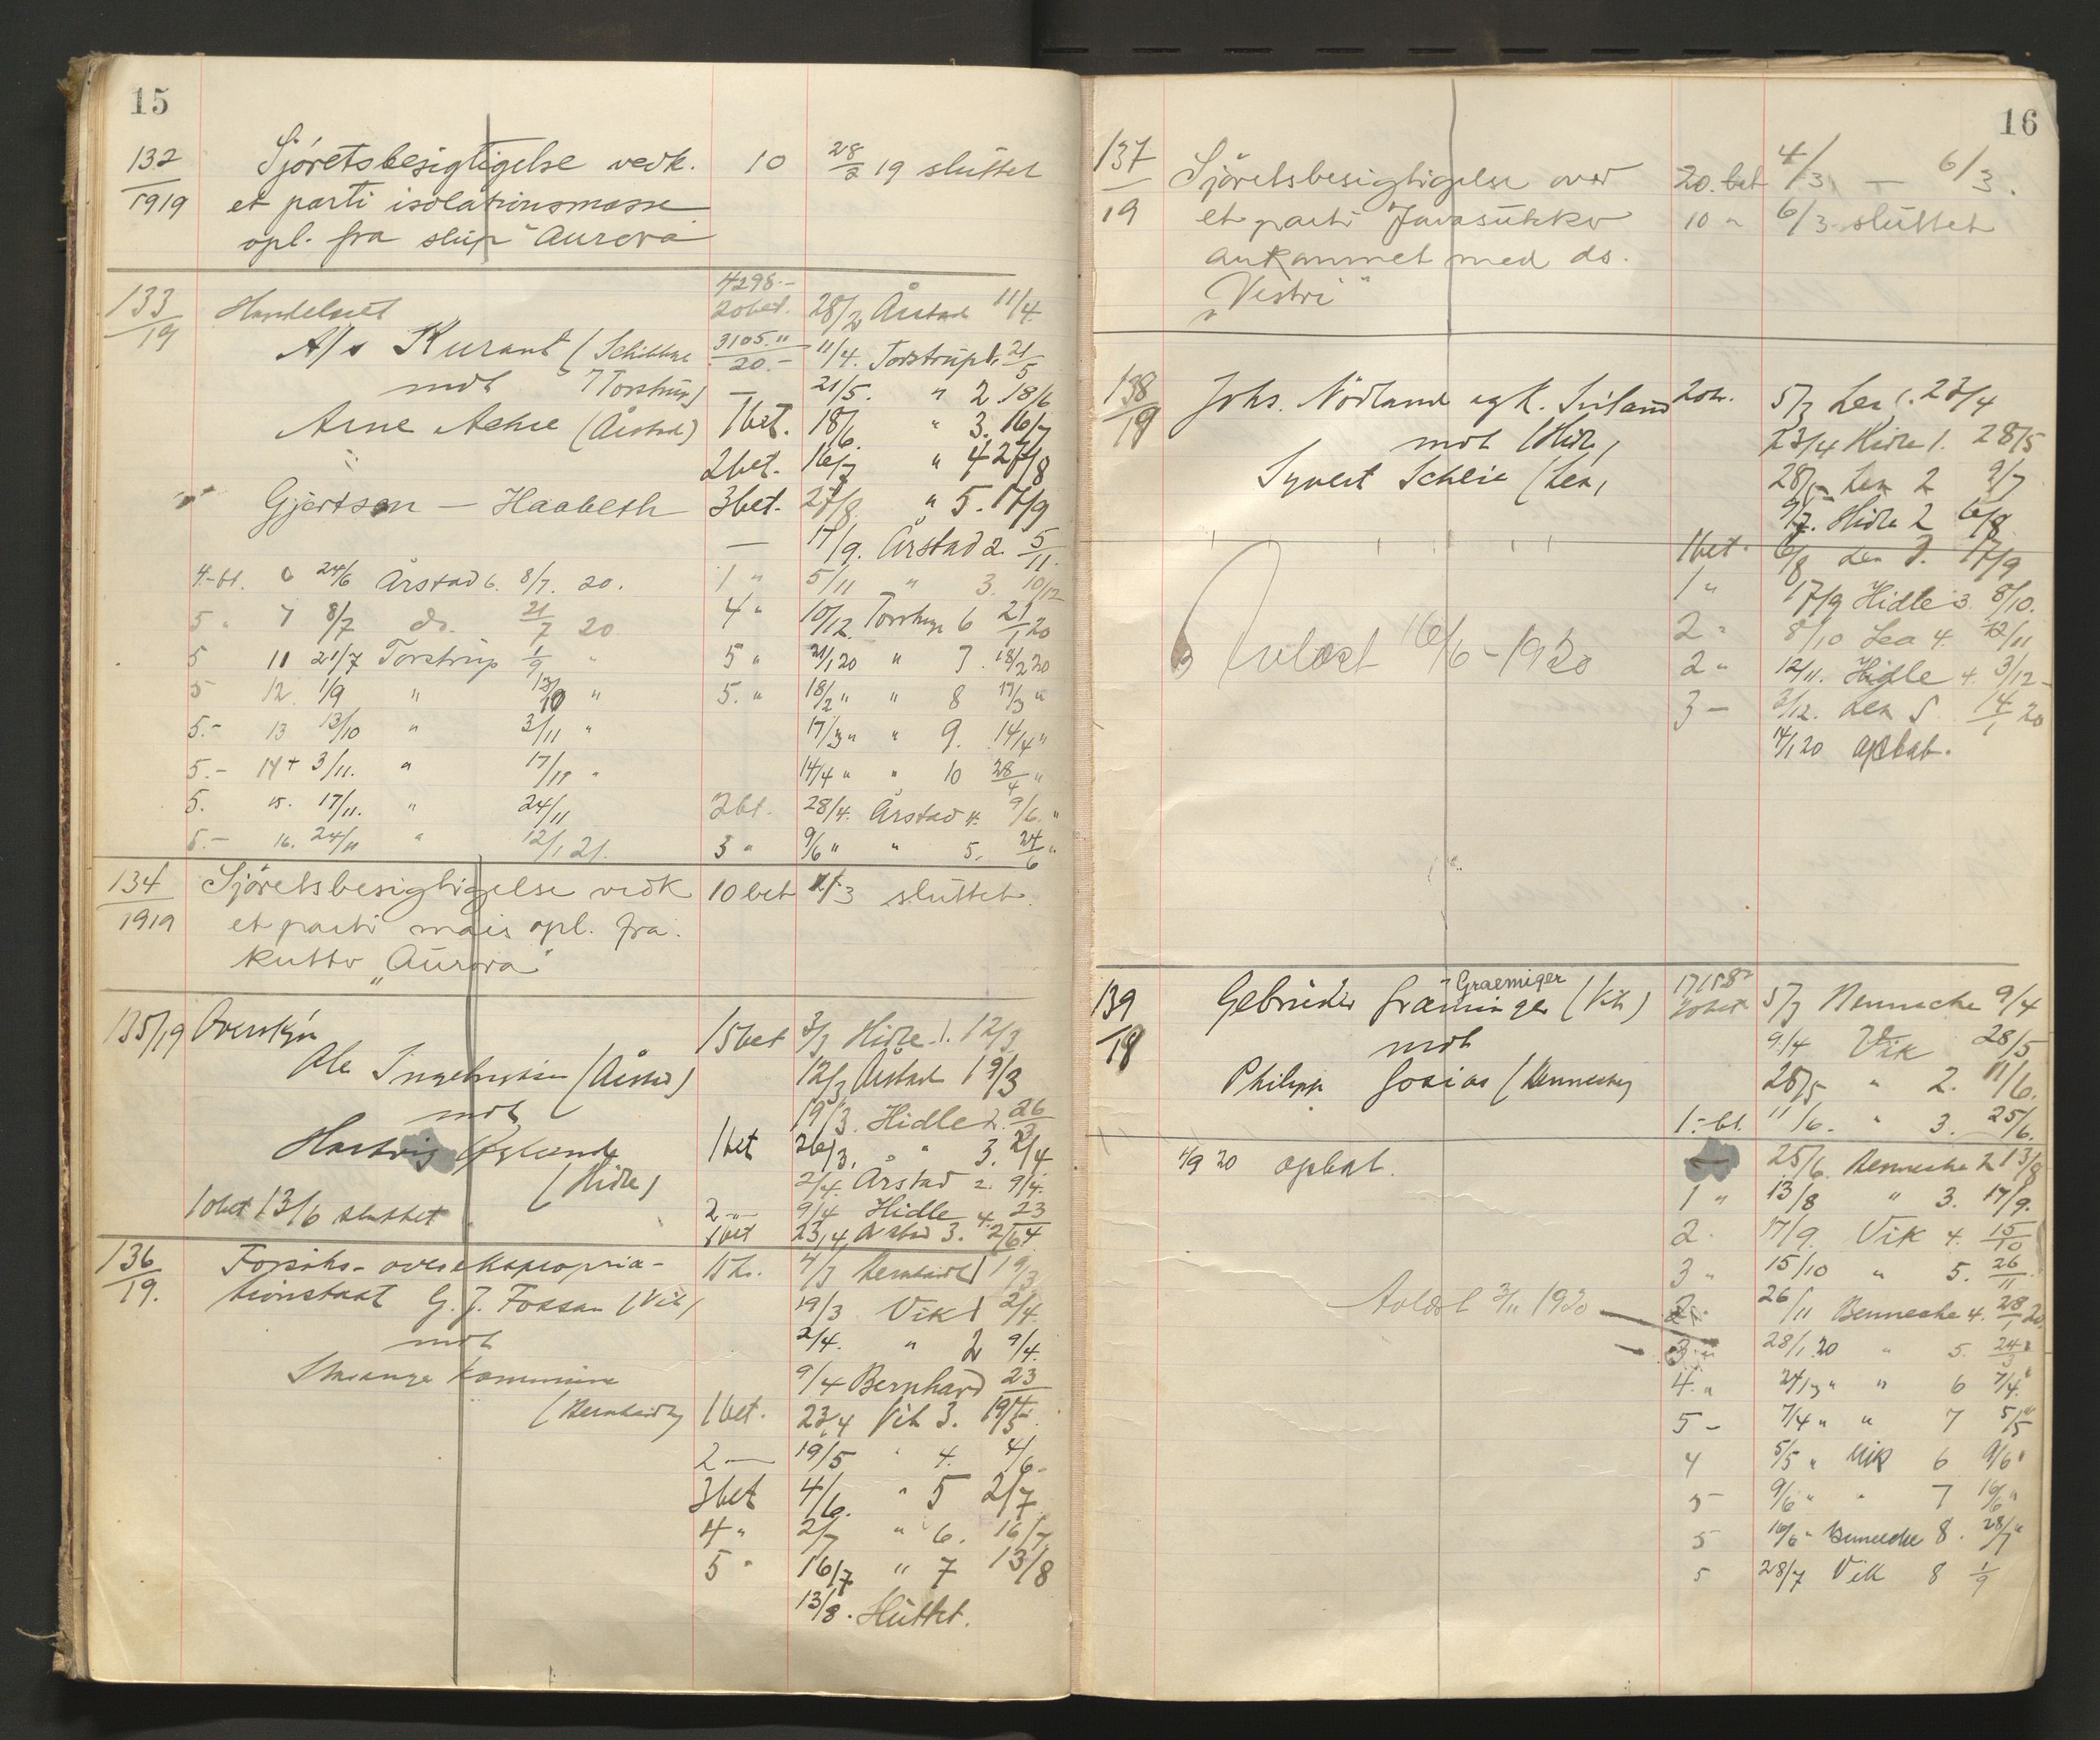 15
132 Sjøretsbesigtigelse vedk. 10 28/2 19 sluttet
1919 et parti isolationsmasse
opl. fra skip "Aurora"
4298.-
133 Handelsret 20 bet. 28/2 Årstad 11/4
19 A/s Kurant (Schibbye 3105." 11/4. Torstrup 1. 21/5
20.-
mot Torstrup) — 21/5. " 2 18/6
Arne Aahre (Årstad) 1 bet. 18/6. " 3. 16/7
2 bet. 16/7 " 4 27/8
Gjertsen — Haabeth 3 bet. 27/8. " 5. 17/9
— 17/9. Årstad 2. 5/11.
4.- bt. 6 24/6 Årstad 6. 8/7. 20. 1 " 5/11 " 3. 10/12
5 " 7 8/7 do. 21/7 20 4 " 10/12. Torstrup 6 21/1 20
5 11 21/7 Torstrup 1/9 " 5 " 21/1 20 " 7. 18/2 20
5 12. 1/9 " 13/10 " 5. " 18/2 " " 8 17/3 "
5.- 13 13/10 " 3/11 " 17/3 " " 9. 14/4 "
5.- 14 3/11. " 17/11 " 14/4 " " 10 28/4 "
5. 15. 17/11. " 24/11 2 bt. 28/4. Årstad 4. 9/6. "
5.- 16. 24/11 " 12/1 21. 3 " 9/6 " " 5. 24/6 "
134 Sjöretsbesigtigelse vedk 10 bet 1/3 sluttet.
1919 et parti mais opl. fra
kutter "Aurora"
135/19 Overskjøn 15 bet 3/3 Hidle 1. 12/3
Ole Ingebrigtsen (Årstad) 12/3 Årstad 19/3
mot 19/3. Hidle 2. 26/3
Hartvig (Hidle) 1 bet 26/3. " 3. 2/4
2/4. Årstad 2. 9/4.
10 bet 13/6 sluttet 2 — 9/4 Hidle 4. 23
1 bet 23/4 Årstad 3.
136 Forsiks- overekspropria- 15 kr. 4/3 Bernhard 1 19/3
19. tionstakst G. J. Fossan (Vik) 19/3 Vik 1 2/4.
mot 2/4. " 2 9/4.
Stavanger kommune 9/4 Bernhard 23
(Bernhard) 1 bet. 23/4 Vik 3. 19/5.
2 — 19/5 " 4. 4/6.
3 bet 4/6. " 5 2/7
4 " 2/7 " 6. 16/7.
5 " 16/7 " 7 13/8
13/8. Sluttet.
16
137 Sjöretsbesigtigelse over 20. bet 4/3 — 6/3.
19 et parti Javasukker 10 " 6/3 sluttet
ankommet med ds.
"Vestri"
138 Johs. Nödland 20 kr. 5/3 Lea 1. 23/4
19 mot (Hidle) 23/4 Hidle 1. 28/5
Syvert Scheie (Lea) 28/5 Lea 2 9/7
9/7. Hidle 2 6/8
1 bet. 6/8 Lea 3. 17/9
1 " 17/9 Hidle 3. 8/10.
Avlæst 16/6 - 1920 2 " 8/10 Lea 4. 12/11
2 " 12/11. Hidle 4. 3/12
3 — 3/12. Lea 5. 14/1 20
14/1 20 opbat.
Graemiger
139 Gebrüder Gräminger (Vik) 20 bet 5/3 Bennecke 9/4
19 mot 9/4 Vik 28/5
Philipp Gosias (Bennecke) 28/5 " 2. 11/6.
1.- bt. 11/6. " 3. 25/6.
1/9 20 opbat. — 25/6. Bennecke 2 13/8
1 " 13/8 " 3. 17/9.
2. 17/9. Vik 4. 15/10
3 " 15/10 " 5. 26/11
Avlæst 3/11 1920 2. 26/11 Bennecke 4. 28/1 20.
3 " 28/1 20 " 5. 24/3 "
4. " 24/3 " " 6 7/4. "
5 - 7/4 " " 7 5/5 "
4 5/5 " Vik 6 9/6 "
5 9/6 " " 7 16/6 "
5 16/6 " Bennecke 8. 28/7 "
5 28/7 Vik 8 1/9